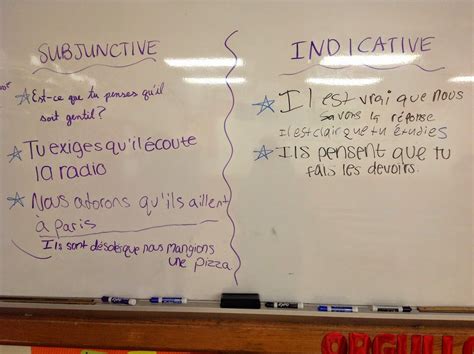 SUBJUNCTIVE
Est-ce que tu penses qu'il
soit gentil?
Tu exiges qu'il écoute
la radio
Nous adorons qu'ils aillent
à Paris
Ils sont désolé que nous mangions
une pizza
INDICATIVE
Il est vrai que nous
savons la réponse
Il est clair que tu étudies
Ils pensent que tu
fais les devoirs.